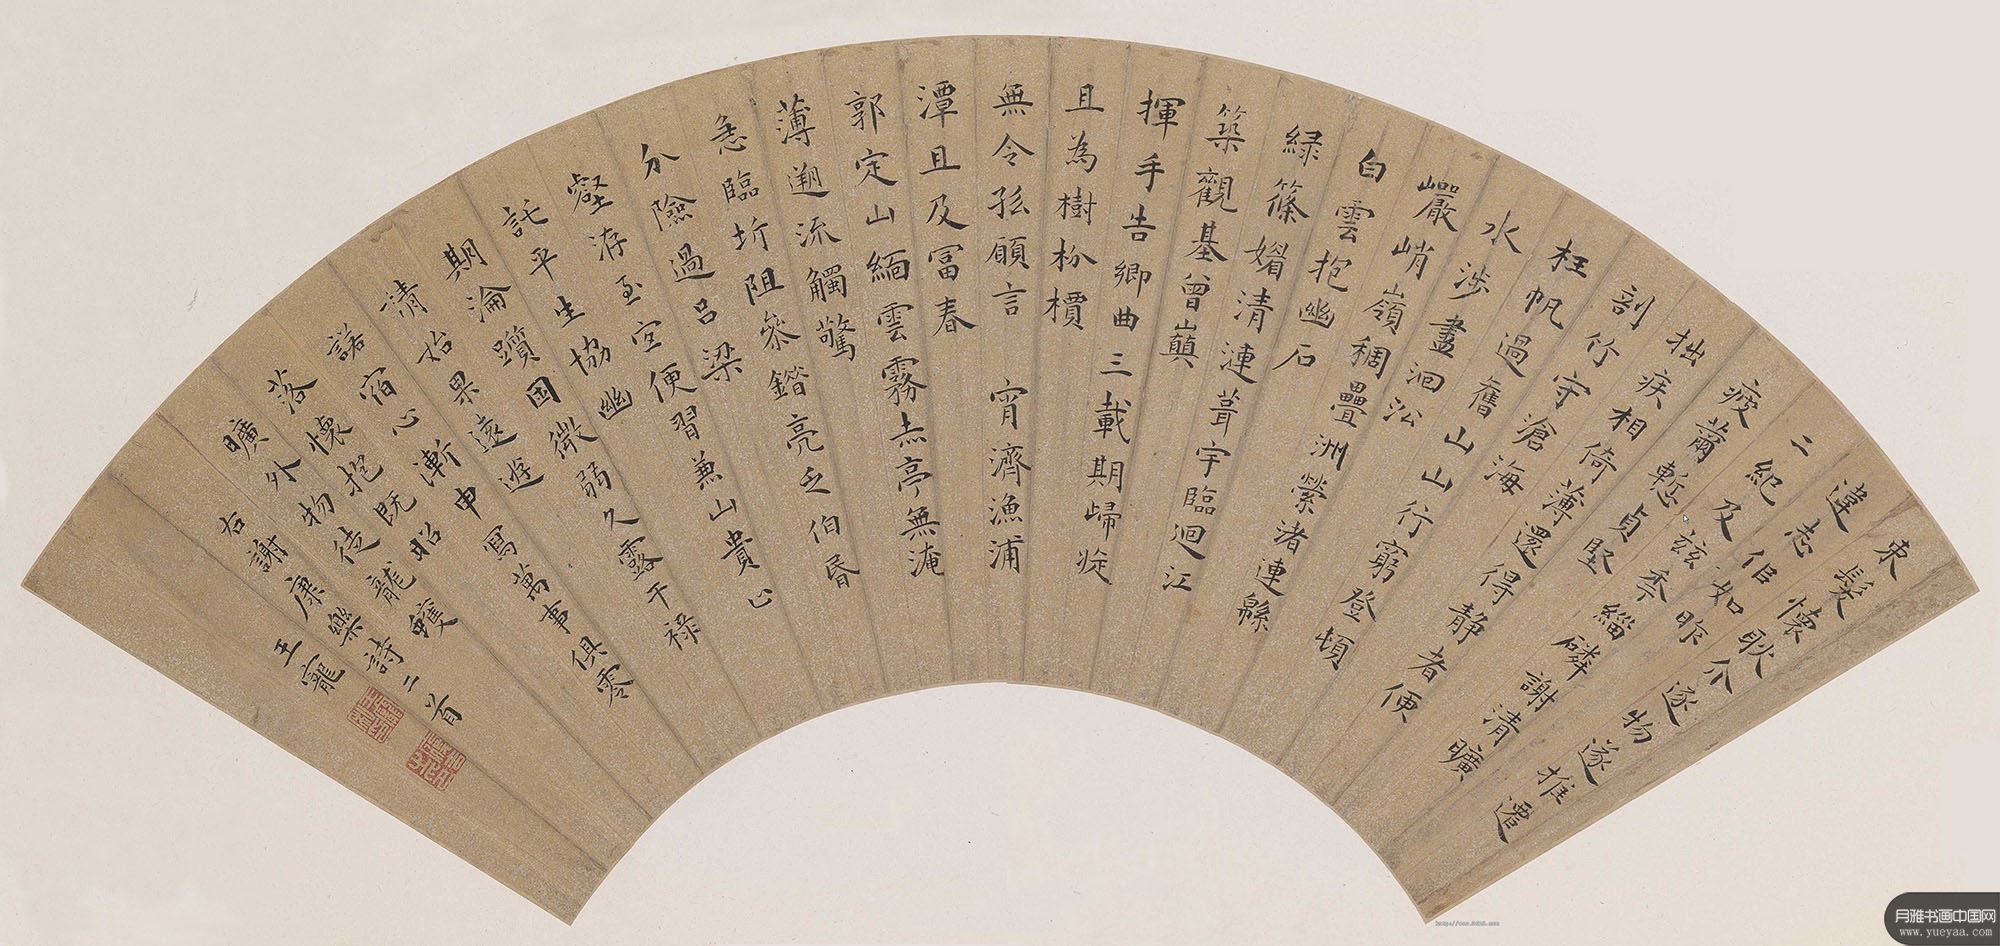 束髮懷耿介逐物遂推遷
違志佀如昨
二紀及茲年緇磷謝清曠
疲薾慙貞堅
拙疾相倚薄還得靜者便
剖竹守滄海
枉帆過舊山山行窮登頓
水涉盡洄沿
巖峭嶺稠疊洲縈渚連緜
白雲抱幽石
緑篠媚清漣葺宇臨迴江
築觀基曾巔
揮手告鄉曲三載期歸旋
且為樹枌檟
無令孤願言 宵濟漁浦
潭旦及富春
郭定山緬雲霧赤亭無淹
薄遡流觸驚
急臨圻阻參錯亮乏伯昏
分險過呂梁
壑洊至宜便習兼山貴止
託平生協幽
期淪躓困微弱久露干祿
請始果遠遊
諾宿心漸申寫萬事俱零
落懷抱既昭
曠外物徒龍蠖
右謝康樂詩二首
王寵
月雅书画中国网
www.yueyaa.com